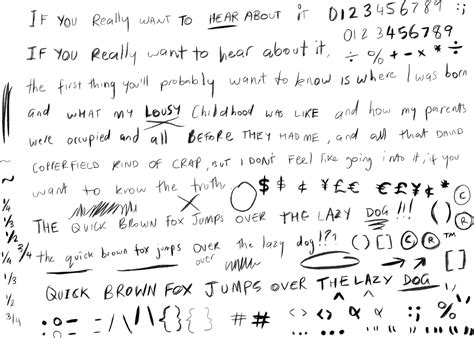 IF YOU Really WANT TO HEAR ABOUT it 0123456789 :;
IF YOU Really want to hear about it, 0123456789
÷ % + - × * -
the first thing you'll probably want to know is where I was born
and WHAT MY LOUSY Childhood WAS LIKE and how my parents
were occupied and all BEFORE THEY HAD ME, and all that DAVID
COPPERFIELD KIND OF CRAP, BUT I DON'T Feel like going into it, if you
want to know the truth. $ $ ¢ ¥ £ € ¥ € £ ¥ ¢ *
THE QUICK BROWN FOX JUMPS OVER THE LAZY DOG!!! () © ®
the quick brown fox jumps OVER the lazy dog!?? () [] © ® ™
over
1/4
1/3
1/2
1/2 3/4
1/3
1/2
3/4
QUICK BROWN FOX JUMPS OVER THE LAZY DOG
: o - = / \ \ {} {} # # <> <> : ; %